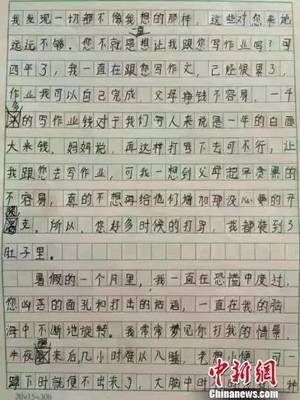 我发现一切都不像我想的那样，这些对您来说
远远不够。您不就是想让我跟您写作业吗？可
四年了，我一直在跟您写作文，已经很累了，
作业我可以自己完成，父母挣钱不容易，一千
的写作业钱对于我们穷人来说是一年的白面
大米钱。妈妈说，再这样打骂下去可不行，让
我跟您去写作业，可我一想到父母起早贪黑的
不容易，真的不想再给他们增加哪没必要的开
支。所以，您好多时候的打骂，我都装到了
肚子里。
暑假的一个月里，我一直在恐慌中度过，
您凶恶的面孔和打出的话语，一直在我的脑
海中不断地旋转。我常常梦见你打我的情景，
半夜醒来后几小时难以入睡，老想小便，可一
蹲下时就便不出来了，大脑中时时
中新网
20×15=300